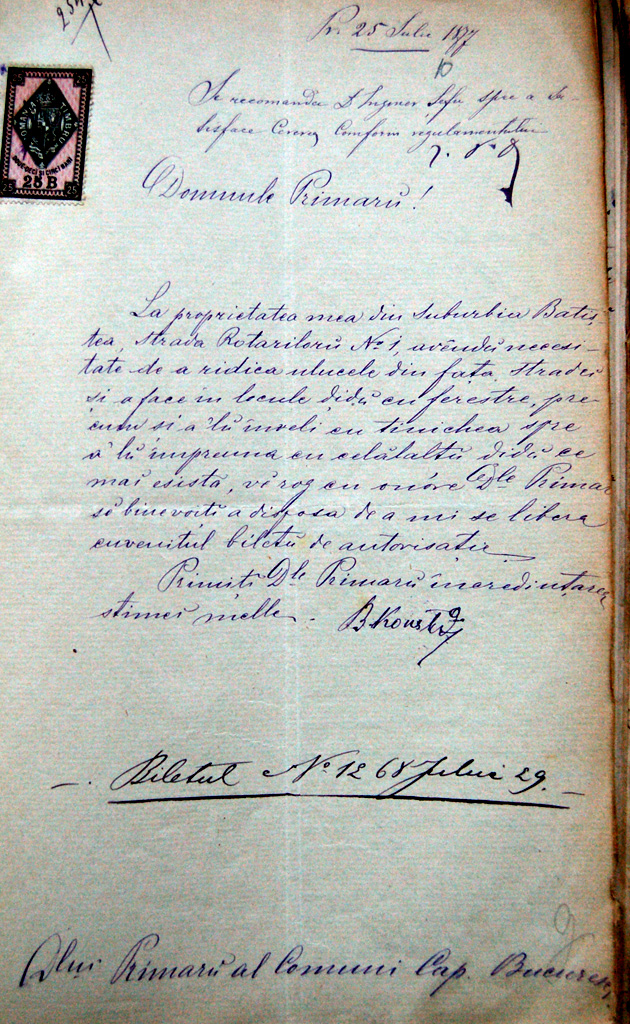 Pr. 25 Iuliu 1877
10
Se recomandă D. Inginer Șefu spre a sa-
tisface Cererea Conform regulamentului
Domnule Primarŭ!
ROMANIA TIMBRU
DOUĕDECI SI CINCI BANI
25 25
25 B
La proprietatea mea din suburbia Batiș
tea, strada Rotarilorŭ No 1, avêndŭ necesi-
tate de a ridica ulucele din fața stradei
si a face in locule didŭ cu ferestre, pre-
cum si a 'lŭ înveli cu tinichea spre
a 'lŭ impreuna cu celălaltŭ didŭ ce
mai esista, vĕ rog cu onóre Dle Primar
sĕ binevoiti a disposa de a mi se libera
cuvenitul biletŭ de autorisatie
Primiti Dle Primarŭ încredintarea
stimei melle.
Biletul No. 1268 Iulie 29.
9
Dlui Primarŭ al Comuni Cap. Bucuresci